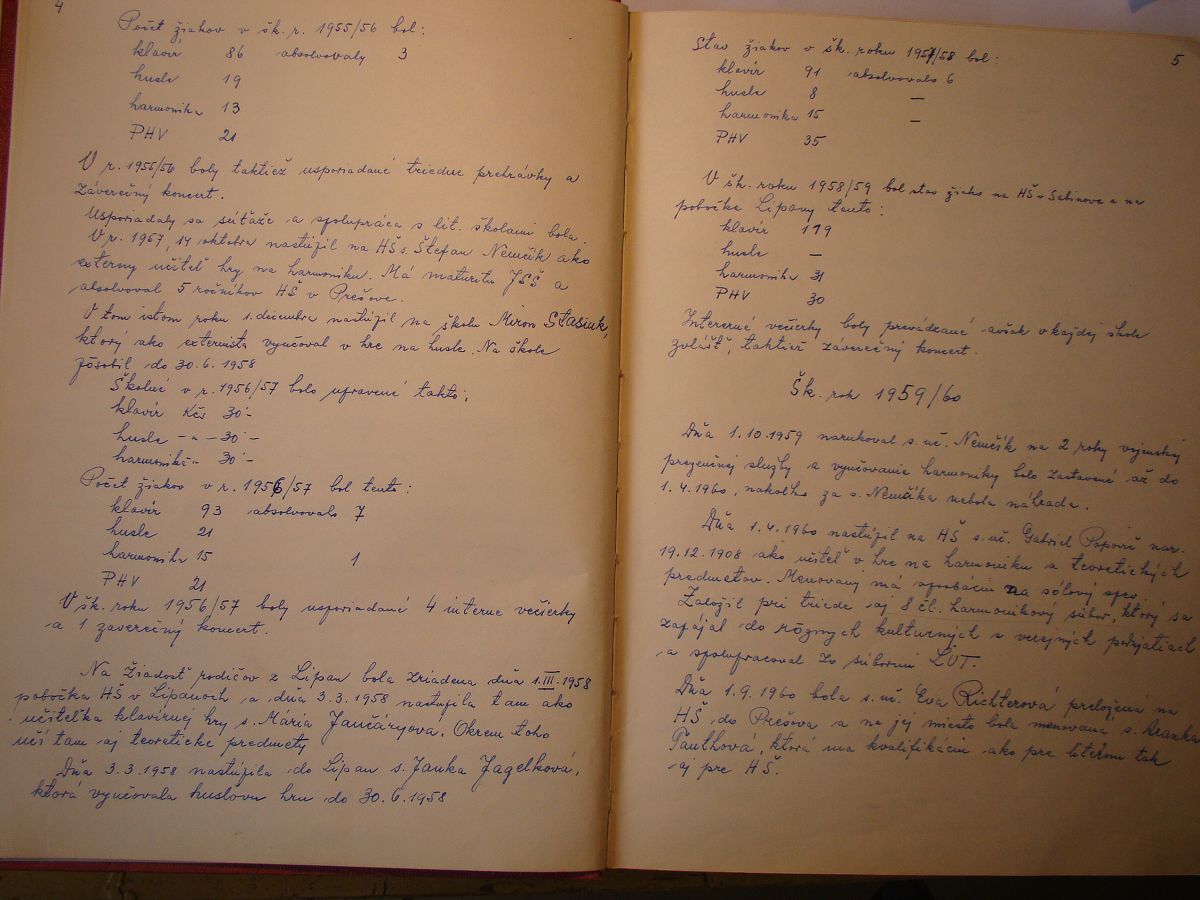 4
Počet žiakov v šk. r. 1955/56 bol:
klavír 86 absolvovaly 3
husle 19
harmonika 13
PHV 21
V r. 1955/56 boly taktiež usporiadané triedne prehrávky a
záverečný koncert.
Usporiadaly sa súťaže a spolupráca s lit. školami bola.
V r. 1957, 14 oktobra nastúpil na HŠ s. Štefan Nemčík ako
externy učiteľ hry na harmoniku. Má maturitu JSŠ a
absolvoval 5 ročníkov HŠ v Prešove.
V tom istom roku 1. decembra nastúpil na školu Miron Stasiuk,
ktorý ako externista vyučoval v hre na husle. Na škole
pôsobil do 30.6.1958
Školné v r. 1956/57 bolo upravené takto:
klavír Kčs 30'-
husle - " - 30'-
harmonika - 30'-
Počet žiakov v r. 1956/57 bol tento:
klavír 93 absolvovalo 7
husle 21
harmonika 15 1
PHV 21
V šk. roku 1956/57 boly usporiadané 4 interne večierky
a 1 zaverečný koncert.
Na žiadosť rodičov z Lipan bola zriadena dňa 1.III.1958
pobočka HŠ v Lipanoch a dňa 3.3.1958 nastupila tam ako
učiteľka klavírnej hry s. Mária Jančáryova. Okrem toho
učí tam aj teoreticke predmety
Dňa 3.3.1958 nastúpila do Lipan s. Janka Jagelková,
ktorá vyučovala huslovu hru do 30.6.1958
5
Stav žiakov v šk. roku 1957/58 bol:
klavír 91 absolvovalo 6
husle 8 —
harmonika 15 —
PHV 35
V šk. roku 1958/59 bol stav žiako na HŠ v Sabinove a na
pobočke Lipany tento:
klavír 119
husle —
harmonika 31
PHV 30
Interné večierky boly prevádzané avšak v každej škole
zvlášť, taktiež záverečný koncert.
Šk. rok 1959/60
Dňa 1.10.1959 narukoval s. uč. Nemčík na 2 roky vojenskej
prezenčnej služby a vyučovanie harmoniky bolo zastavené až do
1.4.1960, nakoľko za s. Nemčíka nebola náhrada.
Dňa 1.4.1960 nastúpil na HŠ s. uč. Gabriel Popovič nar.
19.12.1908 ako učiteľ v hre na harmoniku a teoretických
predmetov. Menovaný má aprobáciu na sólový spev.
Založil pri triede aj 8 čl. harmonikový súbor, ktorý sa
zapájal do rôznych kulturných a verejných podujatiach
a spolupracoval zo súbormi ĽUT.
Dňa 1.9.1960 bola s. uč. Eva Richterová preložená na
HŠ do Prešova a na jej miesto bola menovana s. Aranka
Pauthová, ktorá ma kvalifikáciu ako pre literom tak
aj pre HŠ.